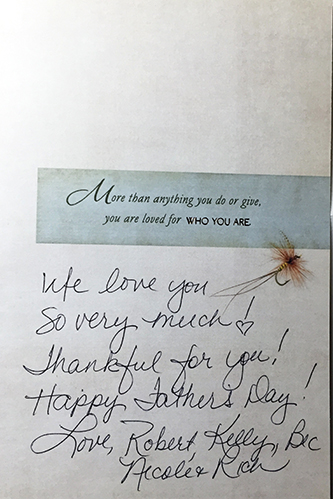 More than anything you do or give,
you are loved for WHO YOU ARE.
We love you
So very much!
Thankful for you!
Happy Father's Day!
Love, Robert, Kelly, Bec
Nicole & Rich